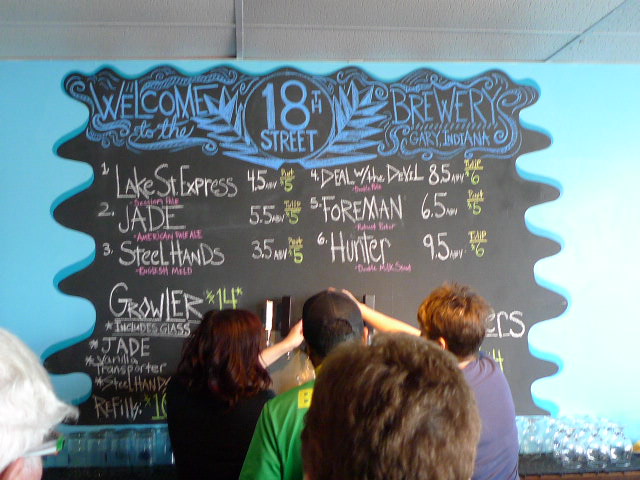 WELCOME to the
18TH STREET
BREWERY
GARY, INDIANA
1. LAKE St. EXPRESS 4.5 ABV Pint $5
Session Pale
2. JADE 5.5 ABV Pint $5
AMERICAN PALE ALE
3. Steel HANDS 3.5 ABV Pint $5
ENGLISH MILD
4. DEAL W/the DEVIL 8.5 ABV TULIP $6
Double Pale
5. FOREMAN 6.5 ABV Pint $5
Robust Porter
6. Hunter 9.5 ABV TULIP $6
Double Milk Stout
GROWLER $14*
*INCLUDES GLASS
*JADE
*Vanilla Transporter
*Steel HAND
Refills